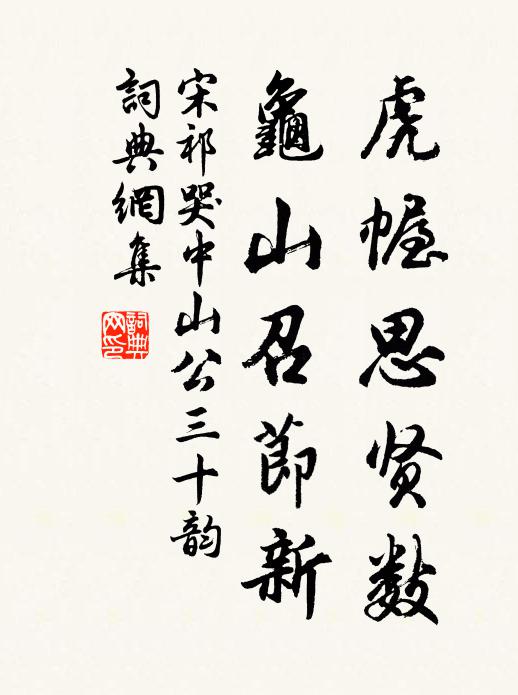 虎幄思贤数
龜山召節新
宋祁哭中山公三十韵
詞典網集
詞典網印